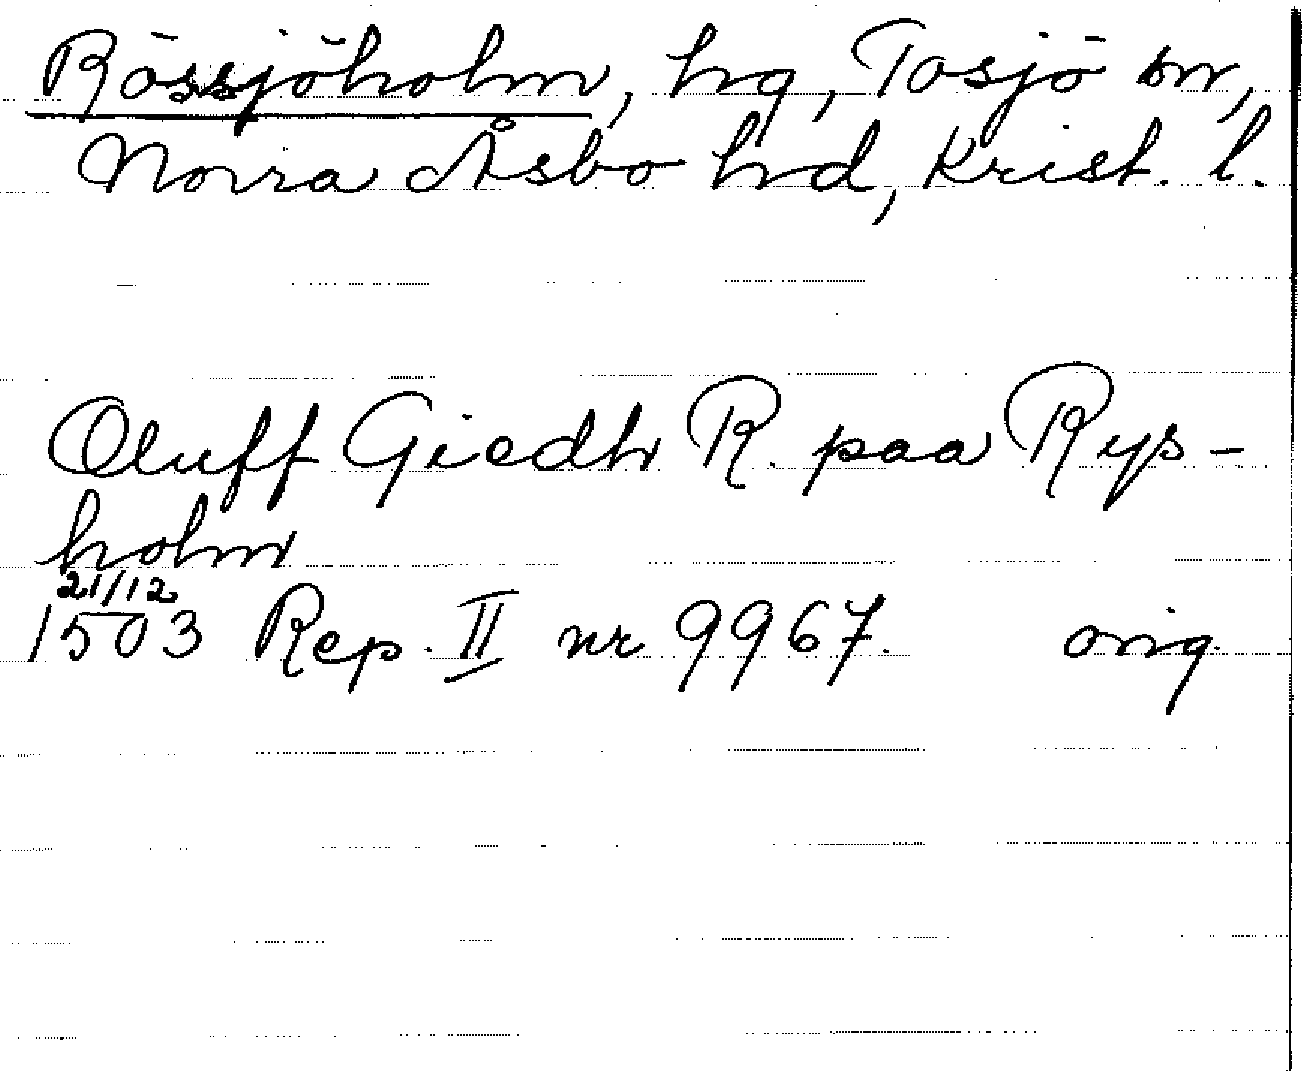 Rössjöholm, hg, Tosjö sn,
Norra Åsbo hd, Krist. l.
Oluff Giedh R. paa Rys-
holm
21/12
1503 Rep. II nr 9967. orig.